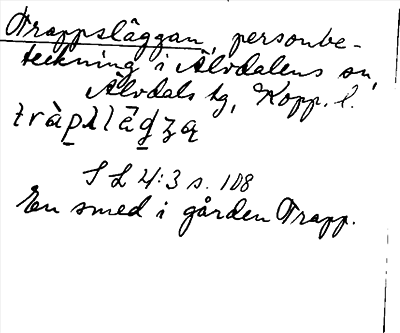 Trappsläggan, personbe-
teckning i Älvdalens sn,
Älvdals tg, Kopp. l.
SL 4:3 s. 108
En smed i gården Trapp.